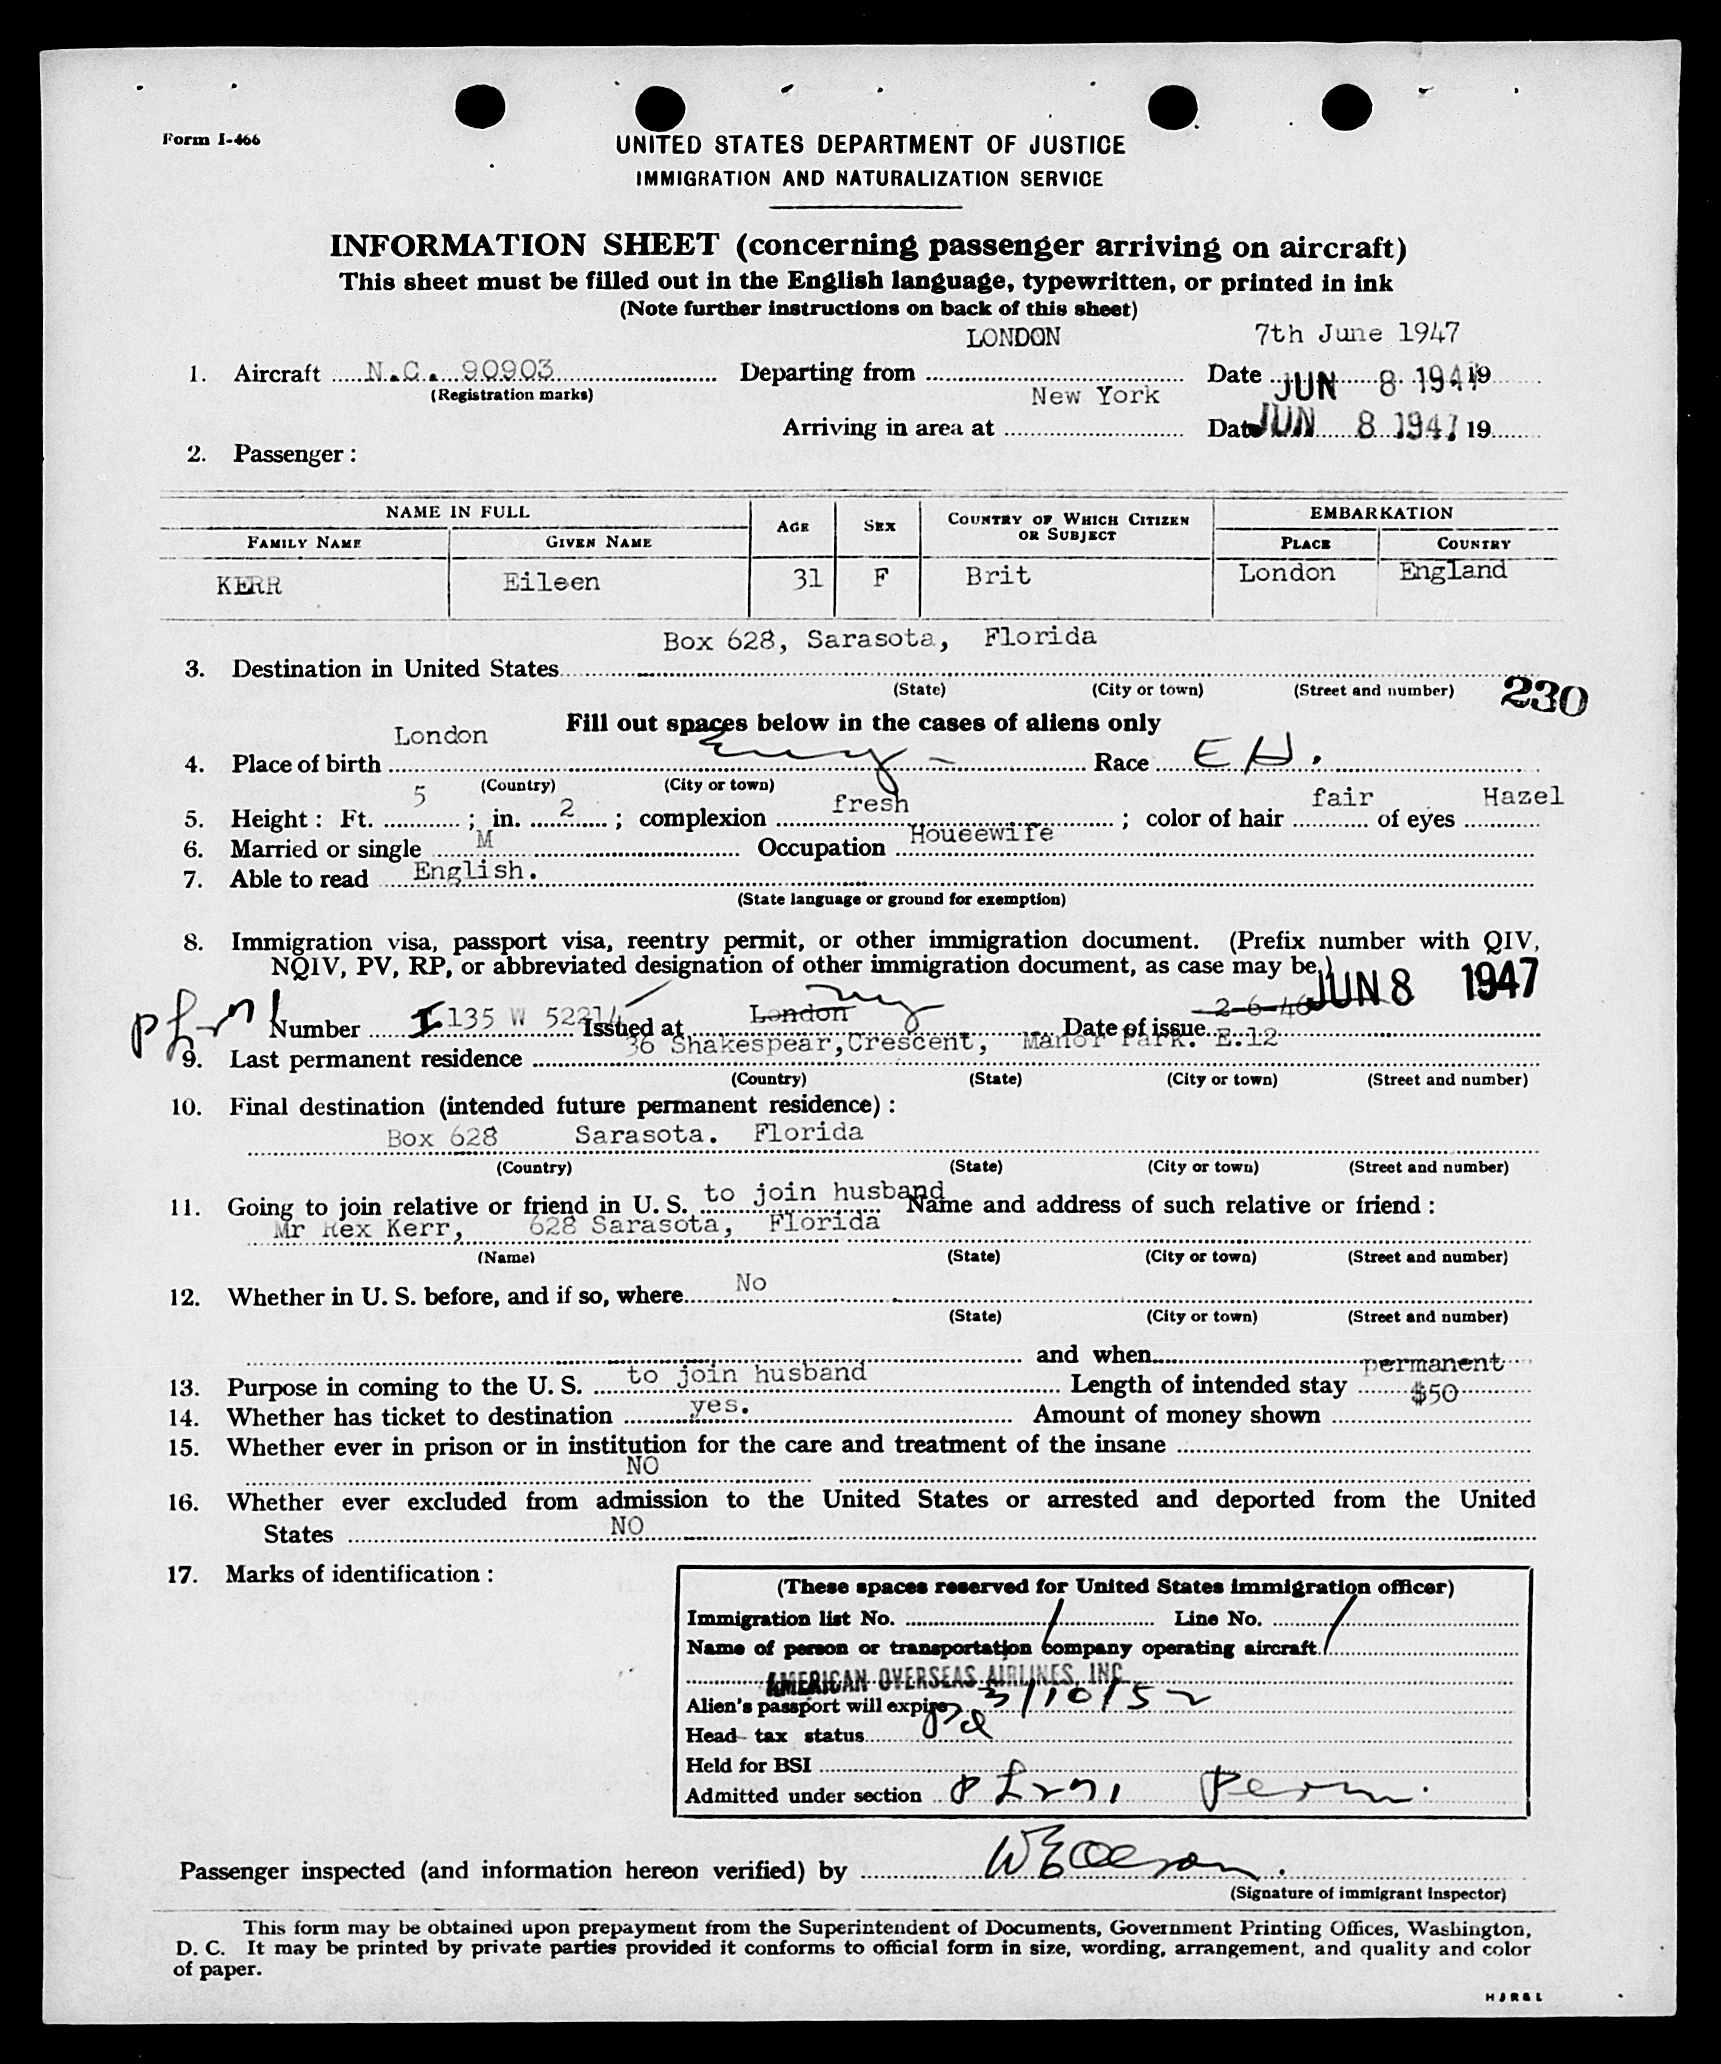 Form I-466
UNITED STATES DEPARTMENT OF JUSTICE
IMMIGRATION AND NATURALIZATION SERVICE
INFORMATION SHEET (concerning passenger arriving on aircraft)
This sheet must be filled out in the English language, typewritten, or printed in ink
(Note further instructions on back of this sheet)
LONDON 7th June 1947
1. Aircraft N.C. 90903 Departing from Date JUN 8 1947 19
(Registration marks) New York
Arriving in area at Date JUN 8 1947 19
2. Passenger:
NAME IN FULL AGE SEX COUNTRY OF WHICH CITIZEN OR SUBJECT EMBARKATION
FAMILY NAME GIVEN NAME PLACE COUNTRY
KERR Eileen 31 F Brit London England
Box 628, Sarasota, Florida
3. Destination in United States
(State) (City or town) (Street and number) 230
Fill out spaces below in the cases of aliens only
London
4. Place of birth Eng - Race EH.
(Country) (City or town)
5. Height: Ft. 5; in. 2; complexion fresh; color of hair fair of eyes Hazel
6. Married or single M Occupation Houeewife
7. Able to read English.
(State language or ground for exemption)
8. Immigration visa, passport visa, reentry permit, or other immigration document. (Prefix number with QIV,
NQIV, PV, RP, or abbreviated designation of other immigration document, as case may be.)
JUN 8 1947
Number I 135 W 52214 Issued at London ny Date of issue 2-6-46
9. Last permanent residence 36 Shakespear,Crescent, Manor Park. E.12
(Country) (State) (City or town) (Street and number)
10. Final destination (intended future permanent residence):
Box 628 Sarasota. Florida
(Country) (State) (City or town) (Street and number)
11. Going to join relative or friend in U. S. to join husband Name and address of such relative or friend:
Mr Rex Kerr, 628 Sarasota, Florida
(Name) (State) (City or town) (Street and number)
12. Whether in U. S. before, and if so, where No
(State) (City or town) (Street and number)
and when
13. Purpose in coming to the U. S. to join husband Length of intended stay permanent
14. Whether has ticket to destination yes. Amount of money shown $50
15. Whether ever in prison or in institution for the care and treatment of the insane
NO
16. Whether ever excluded from admission to the United States or arrested and deported from the United
States NO
17. Marks of identification:
(These spaces reserved for United States immigration officer)
Immigration list No. 1 Line No. 1
Name of person or transportation company operating aircraft
AMERICAN OVERSEAS AIRLINES, INC.
Alien's passport will expire 3/10/52
Head tax status pd
Held for BSI
Admitted under section Perm.
Passenger inspected (and information hereon verified) by
(Signature of immigrant inspector)
This form may be obtained upon prepayment from the Superintendent of Documents, Government Printing Offices, Washington,
D. C. It may be printed by private parties provided it conforms to official form in size, wording, arrangement, and quality and color
of paper.
HJR&L